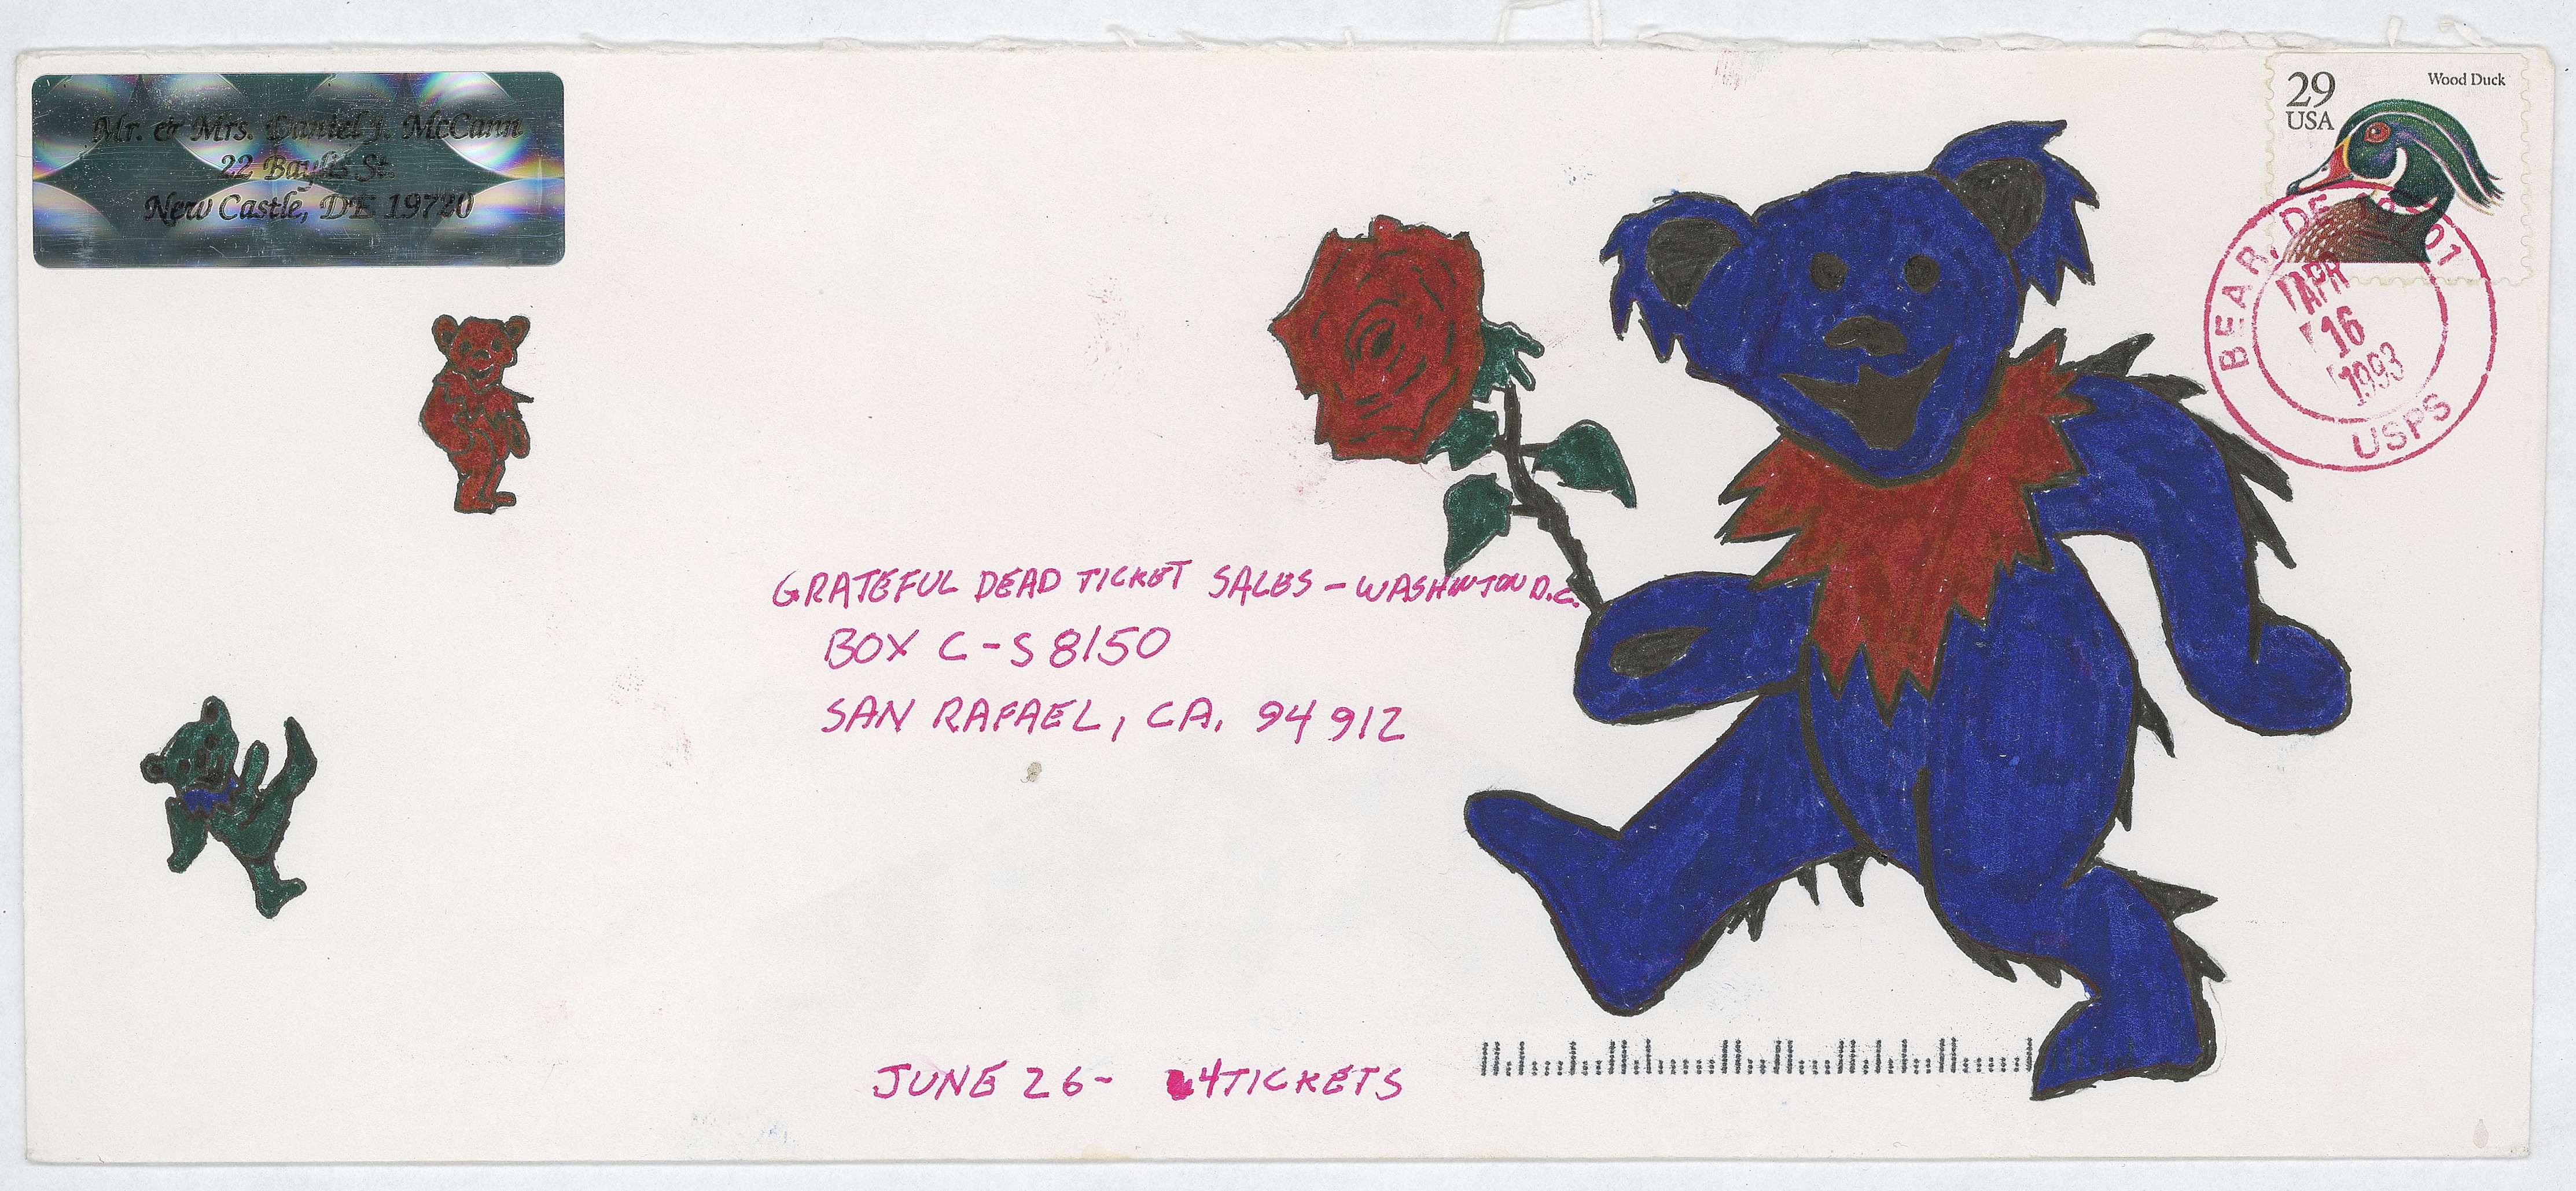 Mr. & Mrs. Daniel J. McCann
22 Baylis St.
New Castle, DE 19720
29
USA
Wood Duck
BEAR, DE 01
APR
16
1993
USPS
GRATEFUL DEAD TICKET SALES - WASHINTON D.C.
BOX C-S 8150
SAN RAFAEL, CA. 94912
JUNE 26- 4 TICKETS